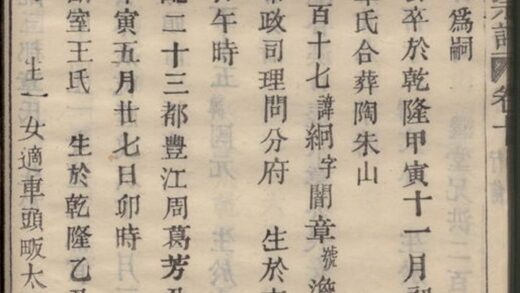 宗譜 卷十
為嗣
卒於乾隆甲寅十一月初
氏合葬陶朱山
百十七諱絅字闇章號澹
政司理問分府 生於
午時
二十三都豐江周葛芳
寅五月廿七日卯時
室王氏 生於乾隆乙丑
生一女適車頭畈太